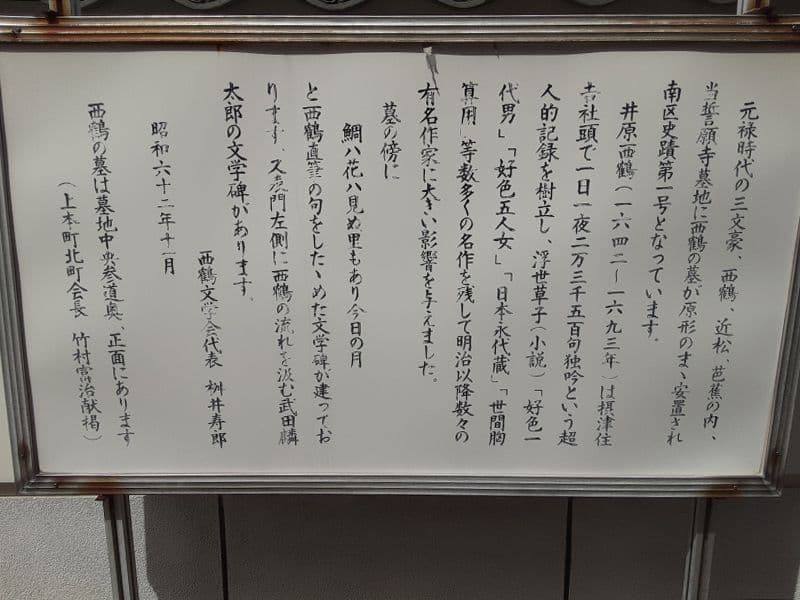 元禄時代の三文豪、西鶴、近松、芭蕉の内、
当誓願寺墓地に西鶴の墓が原形のまゝ安置され
南区史蹟第一号となっています。
井原西鶴(一六四二〜一六九三年)は摂津住
吉社頭で一日一夜二万三千五百句独吟という超
人的記録を樹立し、浮世草子(小説)「好色一
代男」「好色五人女」「日本永代蔵」「世間胸
算用」等数多くの名作を残して明治以降数々の
有名作家に大きい影響を与えました。
墓の傍に
鯛ハ花ハ見ぬ里もあり今日の月
と西鶴直筆の句をしたゝめた文学碑が建ってお
ります。又表門左側に西鶴の流れを汲む武田麟
太郎の文学碑があります。
西鶴文学会代表 桝井寿郎
昭和六十二年十一月
西鶴の墓は墓地中央参道奥、正面にあります
(上本町北町会長 竹村富治献掲)